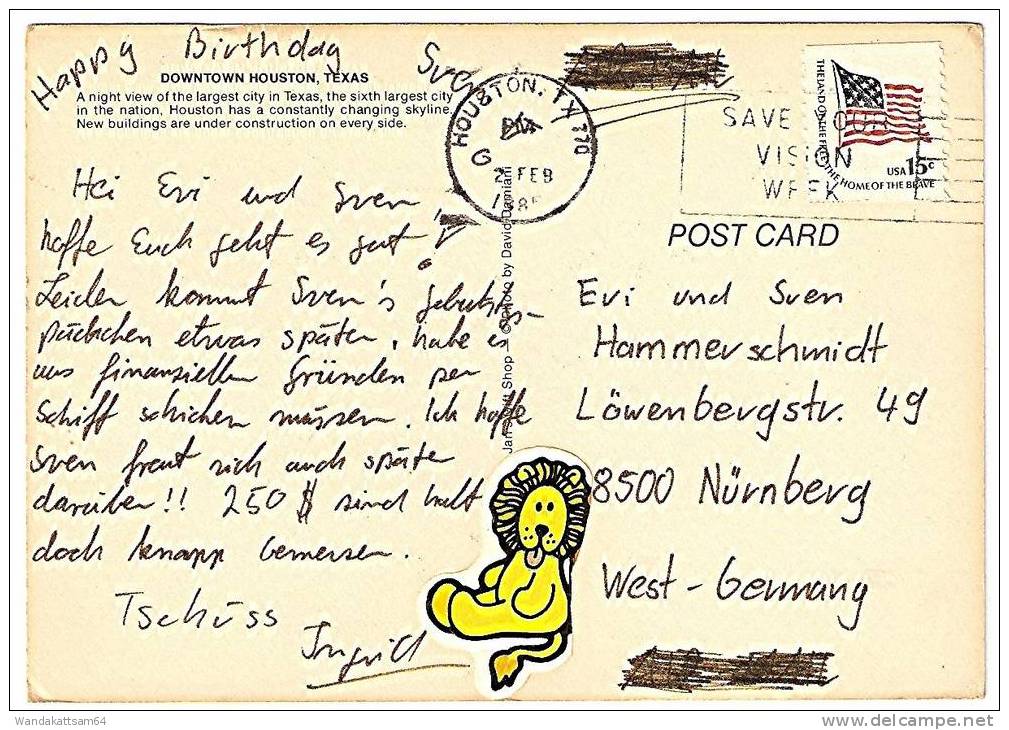 Happy Birthday Sven
DOWNTOWN HOUSTON, TEXAS
A night view of the largest city in Texas, the sixth largest city
in the nation, Houston has a constantly changing skyline.
New buildings are under construction on every side.
Hei Evi und Sven,
hoffe Euch geht es gut!
Leider kommt Sven's Geburtstags-
päckchen etwas später, habe es
aus finanziellen Gründen per
Schiff schicken müssen. Ich hoffe
Sven freut sich auch später
darüber!! 250 $ sind halt
doch knapp bemessen.
Tschüss
Ingrid
HOUSTON, TX 770
2 FEB
SAVE YOUR
VISION
WEEK
THE LAND OF THE FREE THE HOME OF THE BRAVE
USA 15c
Shop – © Photo by David Damiani
POST CARD
Evi und Sven
Hammerschmidt
Löwenbergstr. 49
8500 Nürnberg
West-Germany
Wandakattsam64
www.delcampe.net